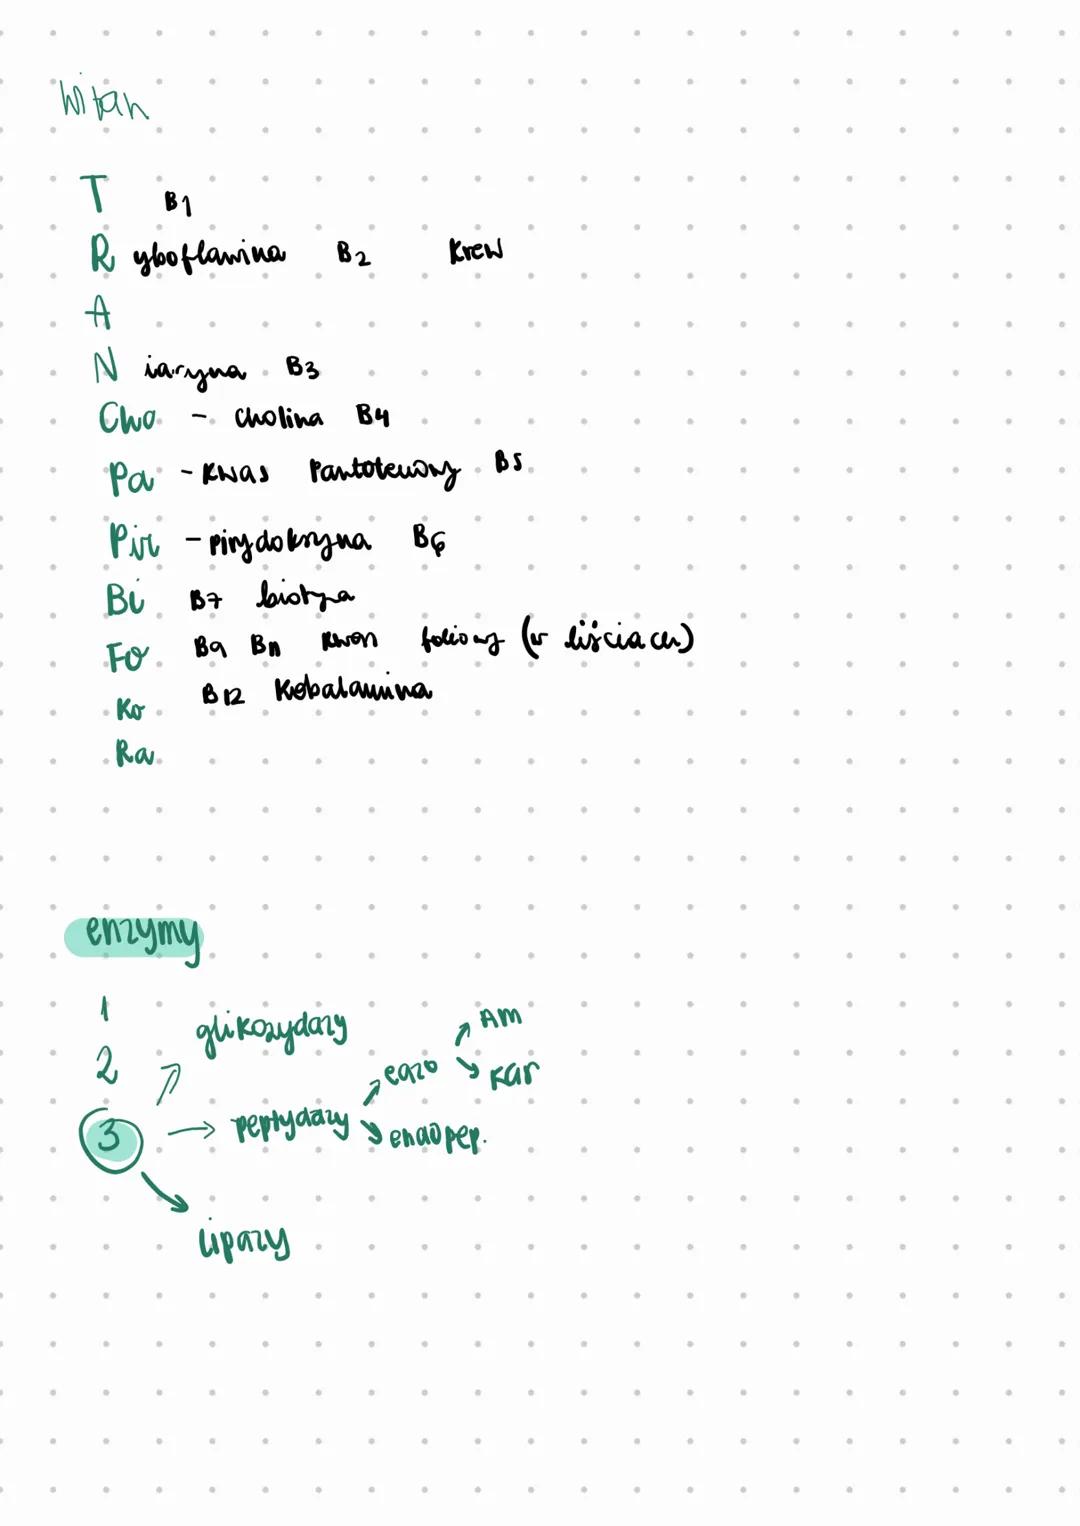 witam
T B1
Ryboflawina B2 Krew
A
Niacyna B3
Cho - cholina B4
Pa - Kwas Pantotenowy B5
Pir - pirydoksyna B6
Bi B7 biotyna
Fo B9 B11 kwas foliowy (w liściach)
Ko B12 Kobalamina
Ra
enzymy
1
2
3
glikozydazy
peptydazy
egzo
AM
Kar
endopep.
lipazy